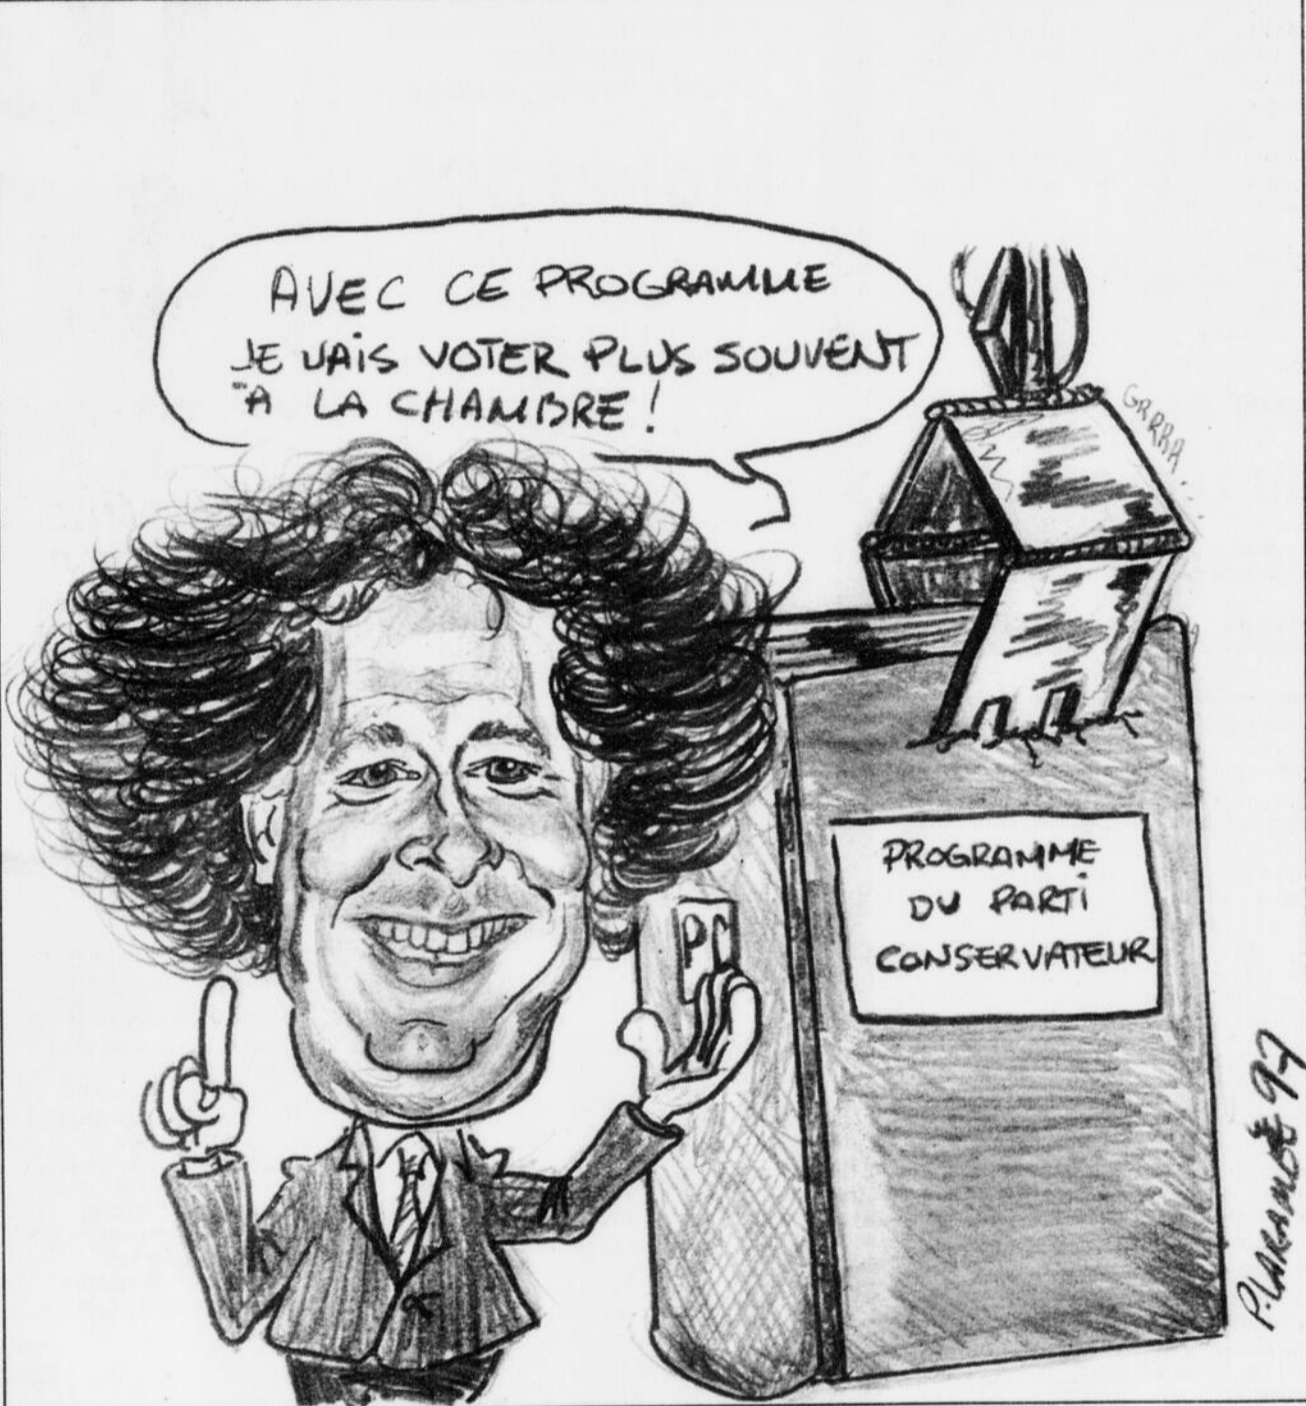 AVEC CE PROGRAMME
JE VAIS VOTER PLUS SOUVENT
À LA CHAMBRE !
GRRRA
PC
PROGRAMME
DU PARTI
CONSERVATEUR
P. LARAMÉE 97